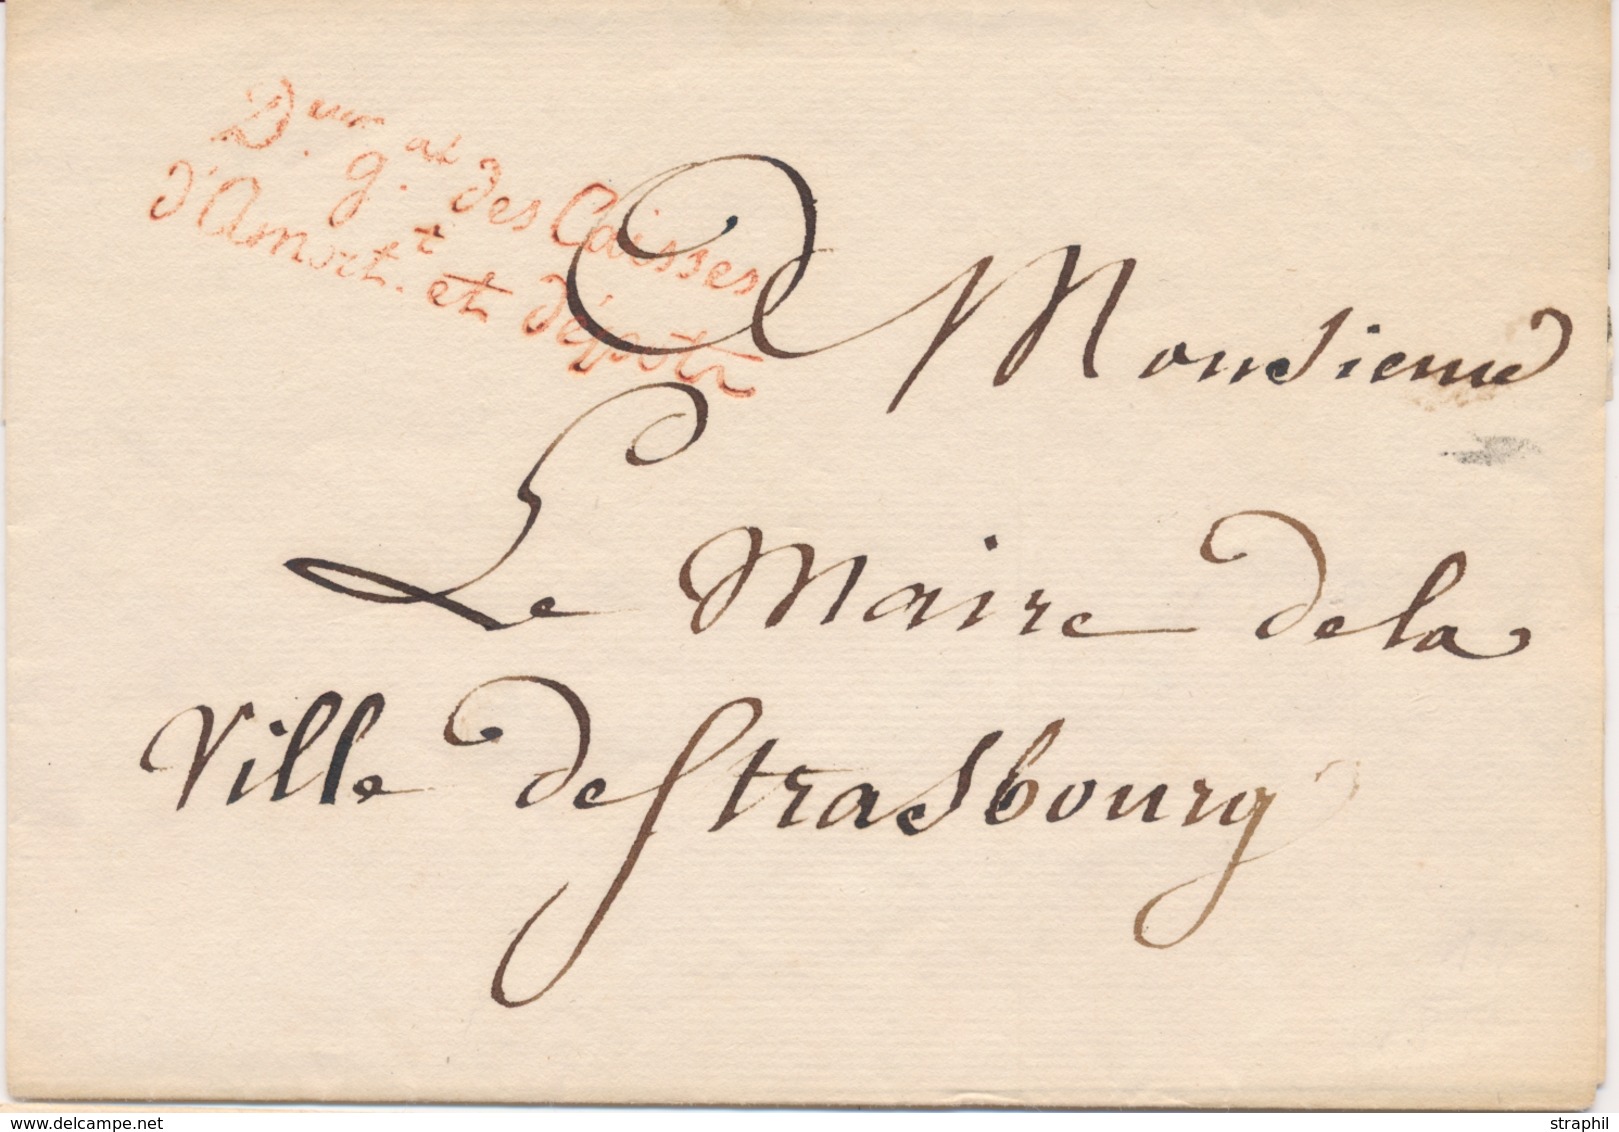 Deur. gal. des Caisses
d'Amortt. et dépots
A Monsieur
Le Maire de la
Ville de Strasbourg
www.delcampe.net
straphil